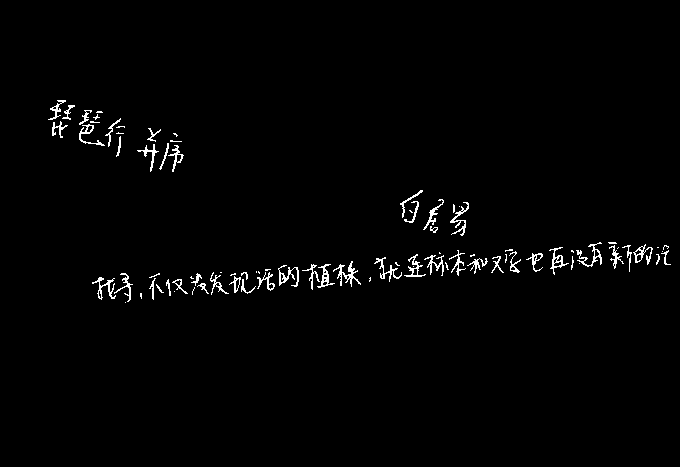 琵琶行 并序
白居易
找寻，不仅没发现活的植株，就连标本和文字也再没有新的记